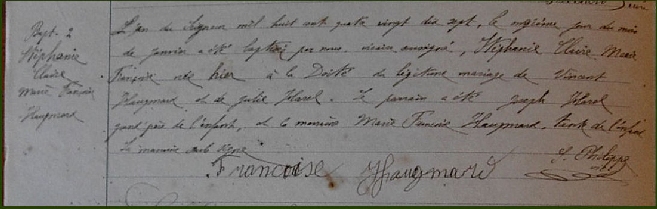 Bapt. 2
Stéphanie
Claire
Marie Françoise
Haugmard
L'an du Seigneur mil huit cent quatre vingt dix sept, le onzième jour du mois
de janvier a été baptisée par nous, vicaire soussigné, Stéphanie Claire Marie
Françoise née hier à la du légitime mariage de Vincent
Haugmard et de Julie Harel. Le parrain a été Joseph Harel
grand père de l'enfant, et la marraine Marie Françoise Haugmard, tante de l'enfant
La marraine seule signe
Françoise Haugmard
J. Philippe
vic.